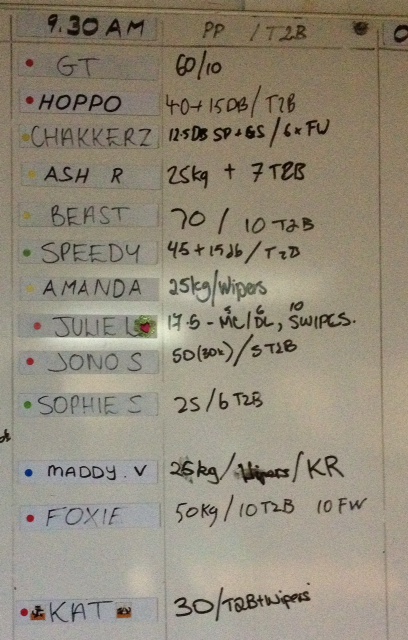 9.30 AM PP / T2B
GT 60/10
HOPPO 40+15DB/T2B
CHAKKERZ 12.5DB SP+GS/6xFW
ASH R 25kg + 7 T2B
BEAST 70 / 10 T2B
SPEEDY 45+15db/T2B
AMANDA 25kg/Wipers
JULIE L 17.5 - 5 MC/6 DL, 10 SWIPES.
JONO S 50(30x)/5 T2B
SOPHIE S 25/6 T2B
MADDY. V 25kg/Wipers/KR
FOXIE 50kg/10T2B 10 FW
KAT 30/T2B+Wipers